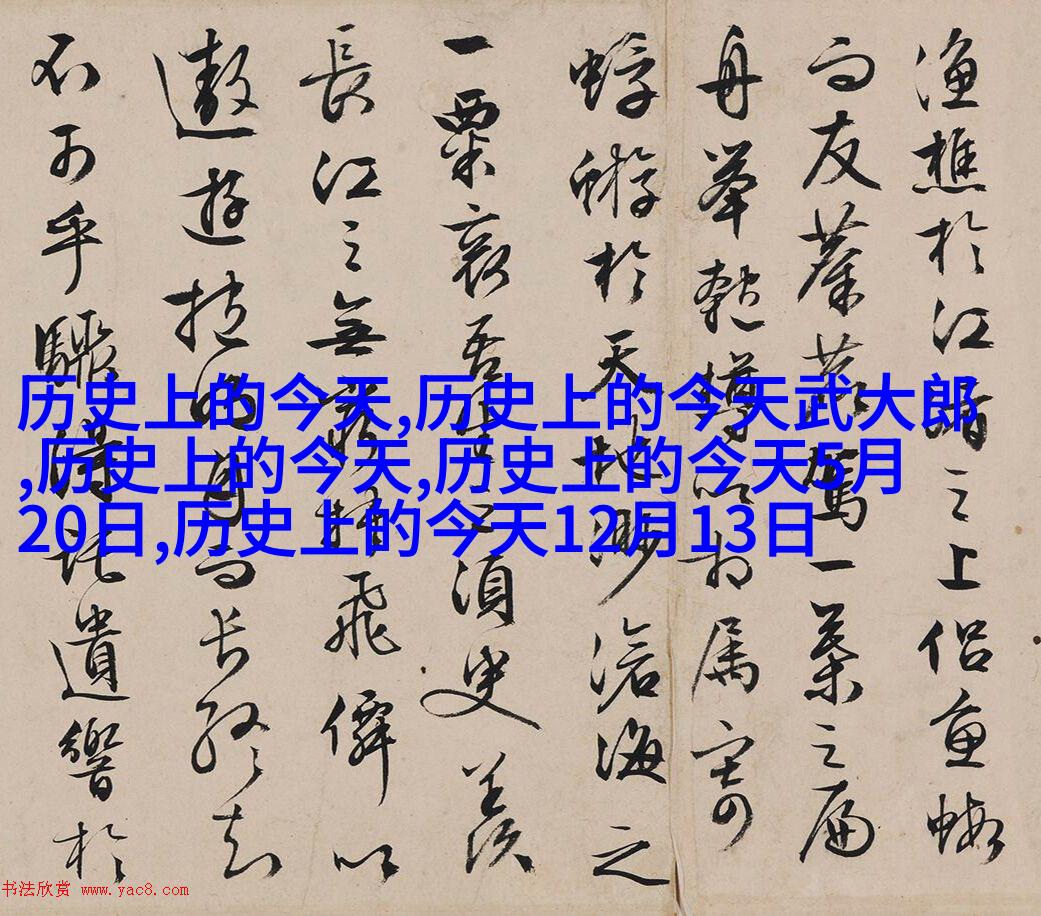 漁樵於江渚之上侣魚蝦
而友麋鹿駕一葉之扁
舟舉匏樽以相属寄
蜉蝣於天地渺滄海之
一粟哀吾生之須臾羡
長江之無窮挾飛僊以
遨遊抱明月而長終知
不可乎驟得託遺響於
历史上的今天,历史上的今天武大郎
,历史上的今天,历史上的今天5月
20日,历史上的今天12月13日
书法欣赏 www.yac8.com